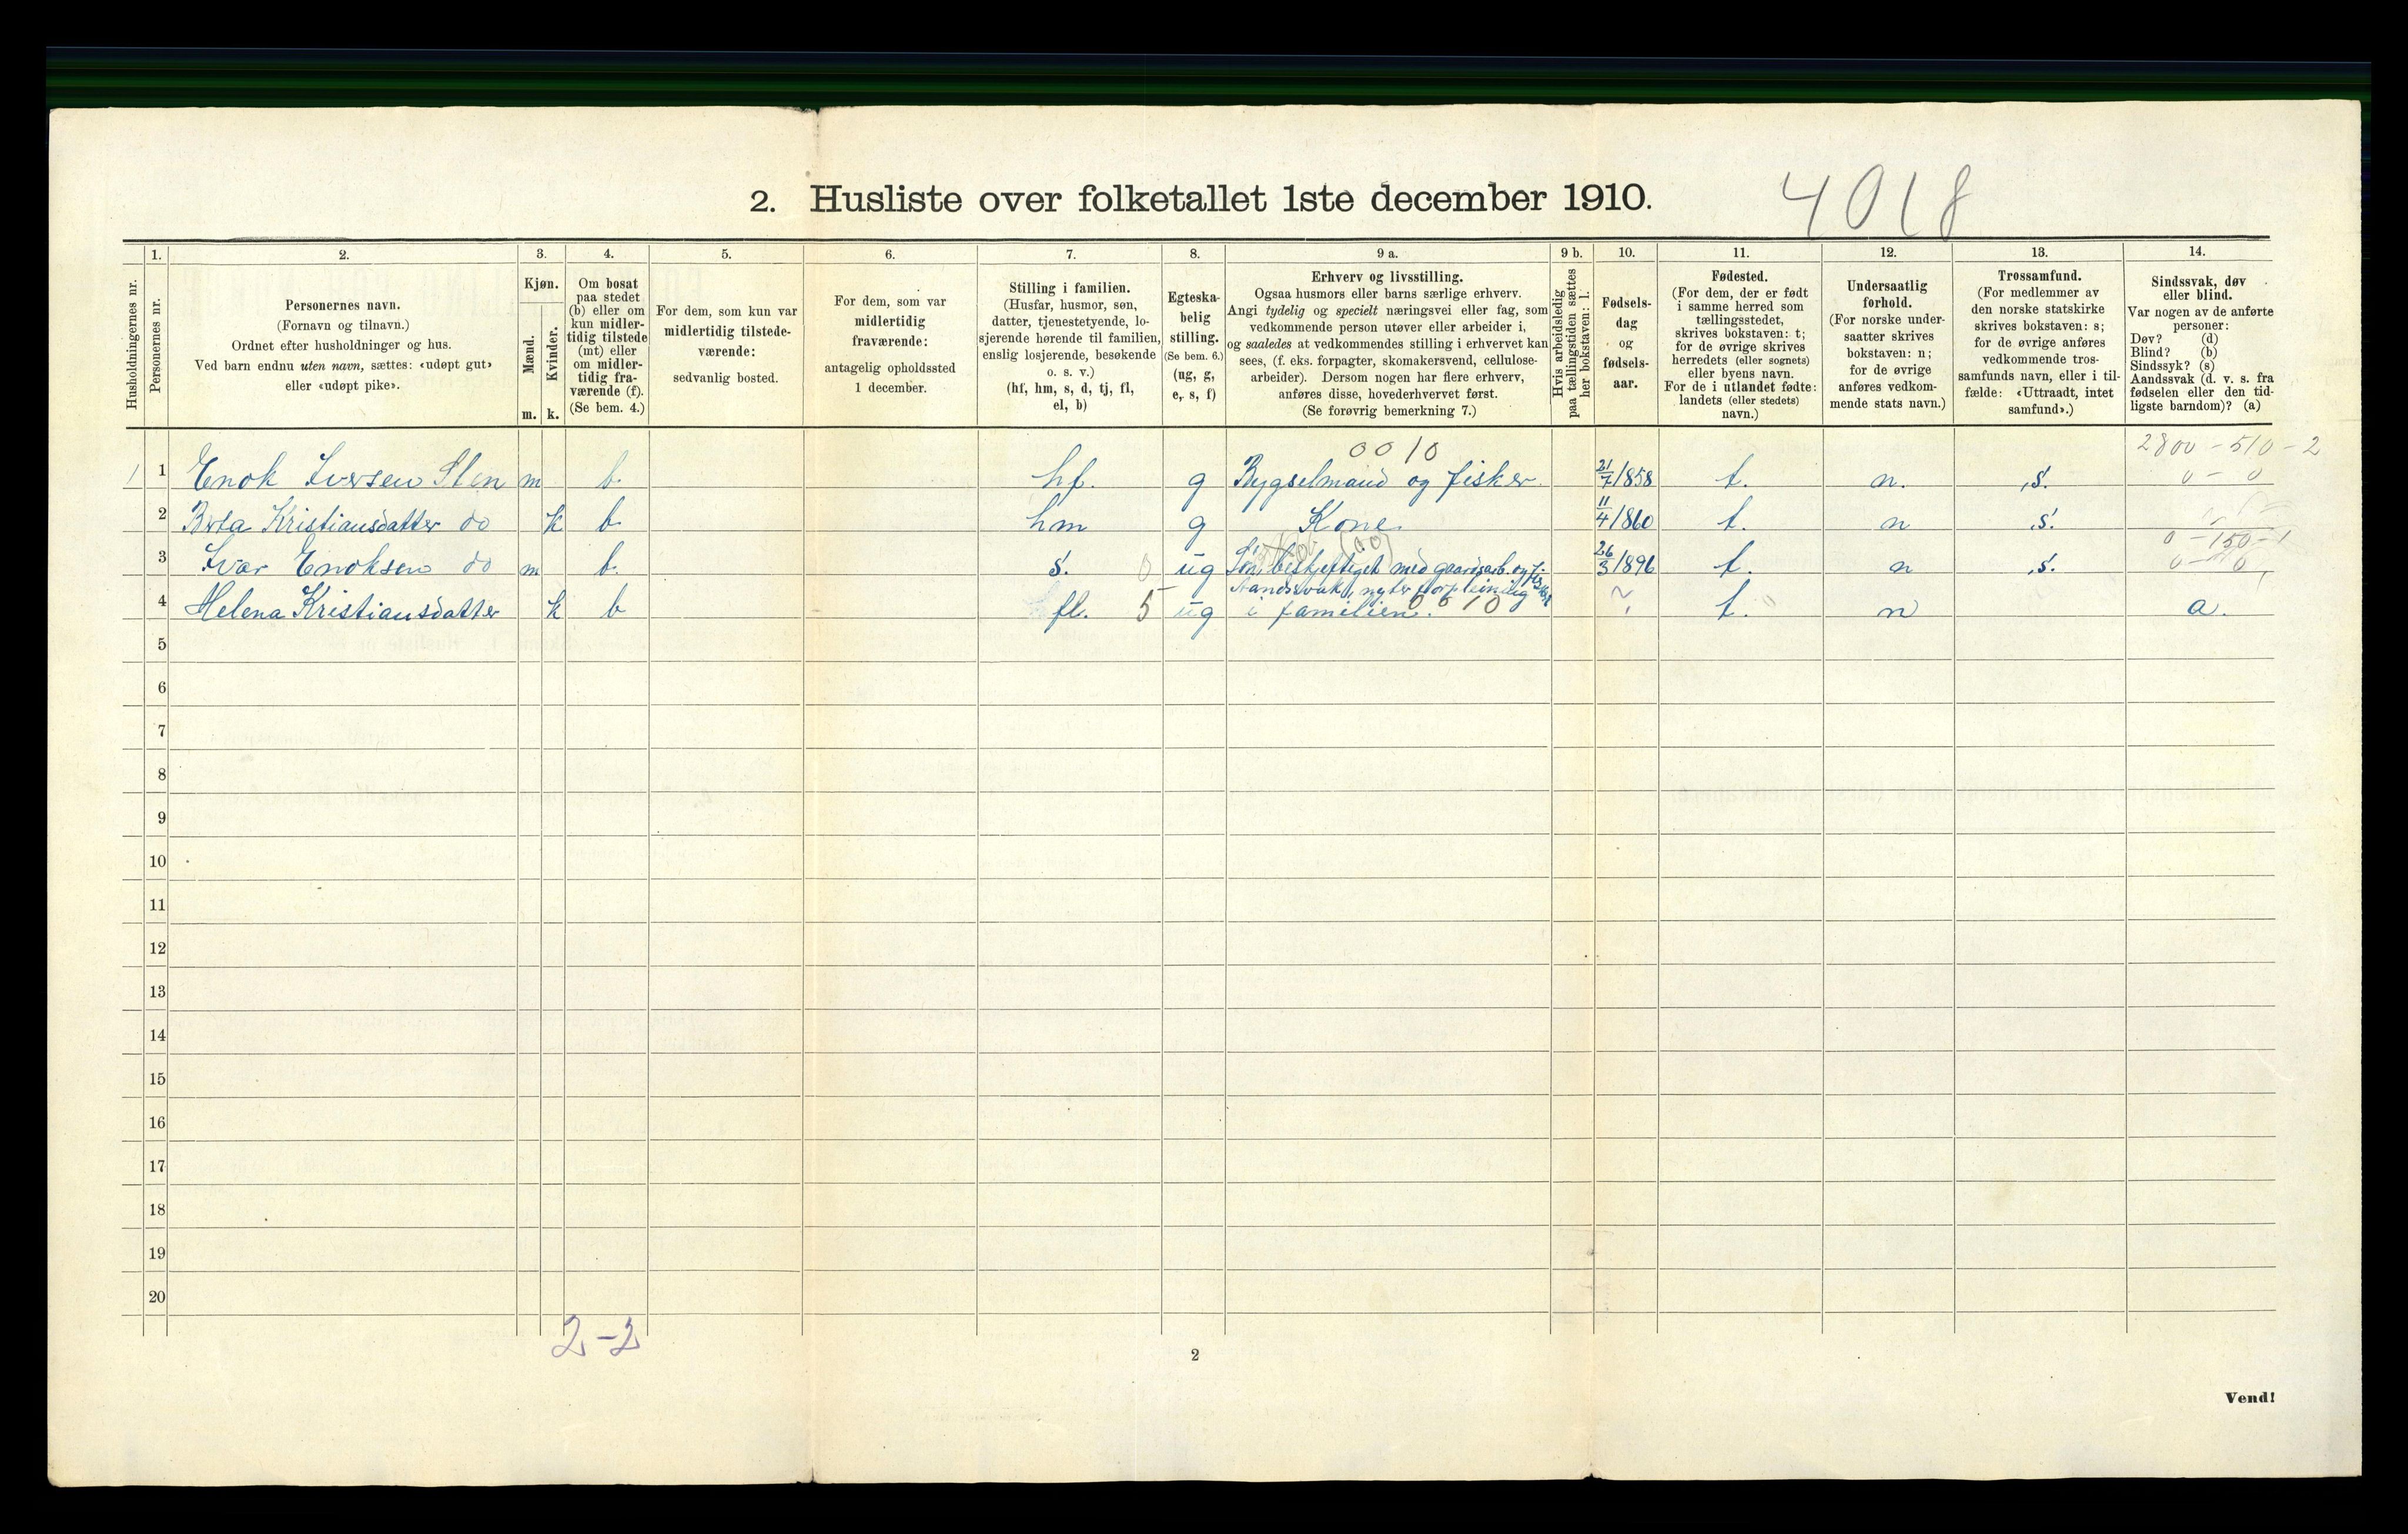 2. Husliste over folketallet 1ste december 1910.
4018
Husholdningernes nr.
1.
Personernes nr.
2.
Personernes navn.
(Fornavn og tilnavn.)
Ordnet efter husholdninger og hus.
Ved barn endnu uten navn, sættes: «udøpt gut»
eller «udøpt pike».
3.
Kjøn.
Mænd.
Kvinder.
m. k.
4.
Om bosat
paa stedet
(b) eller om
kun midler-
tidig tilstede
(mt) eller
om midler-
tidig fra-
værende (f).
(Se bem. 4.)
5.
For dem, som kun var
midlertidig tilstede-
værende:
sedvanlig bosted.
6.
For dem, som var
midlertidig
fraværende:
antagelig opholdssted
1 december.
7.
Stilling i familien.
(Husfar, husmor, søn,
datter, tjenestetyende, lo-
sjerende hørende til familien,
enslig losjerende, besøkende
o. s. v.)
(hf, hm, s, d, tj, fl,
el, b)
8.
Egteska-
belig
stilling.
(Se bem. 6.)
(ug, g,
e, s, f)
9 a.
Erhverv og livsstilling.
Ogsaa husmors eller barns særlige erhverv.
Angi tydelig og specielt næringsvei eller fag, som
vedkommende person utøver eller arbeider i,
og saaledes at vedkommendes stilling i erhvervet kan
sees, (f. eks. forpagter, skomakersvend, cellulose-
arbeider). Dersom nogen har flere erhverv,
anføres disse, hovederhvervet først.
(Se forøvrig bemerkning 7.)
9 b.
Hvis arbeidsledig
paa tællingstiden sættes
her bokstaven: l.
10.
Fødsels-
dag
og
fødsels-
aar.
11.
Fødested.
(For dem, der er født
i samme herred som
tællingsstedet,
skrives bokstaven: t;
for de øvrige skrives
herredets (eller sognets)
eller byens navn.
For de i utlandet fødte:
landets (eller stedets)
navn.)
12.
Undersaatlig
forhold.
(For norske under-
saatter skrives
bokstaven: n;
for de øvrige
anføres vedkom-
mende stats navn.)
13.
Trossamfund.
(For medlemmer av
den norske statskirke
skrives bokstaven: s;
for de øvrige anføres
vedkommende tros-
samfunds navn, eller i til-
fælde: «Uttraadt, intet
samfund».)
14.
Sindssvak, døv
eller blind.
Var nogen av de anførte
personer:
Døv? (d)
Blind? (b)
Sindssyk? (s)
Aandssvak (d. v. s. fra
fødselen eller den tid-
ligste barndom)? (a)
0010 2800-510-2
1 1 Enok Iversen Sten m b. hf. g Bygselmand og fisker. 21/7 1858 t. n. s. 0-0
2 Berta Kristiansdatter do k b. hm g Kone. 11/4 1860 t. n s.
0-150-1
3 Ivar Enoksen do m b. s. 0 ug Søn, beskjeftiget med gaardsarb. og fiskeri 26/3 1896 t. n s.
Aandssvak, nyter forpleining
4 Helena Kristiansdatter k b fl. 5 ug i familien. 0010 ? t. n a.
5
6
7
8
9
10
11
12
13
14
15
16
17
18
19
20
2-2
2
Vend!